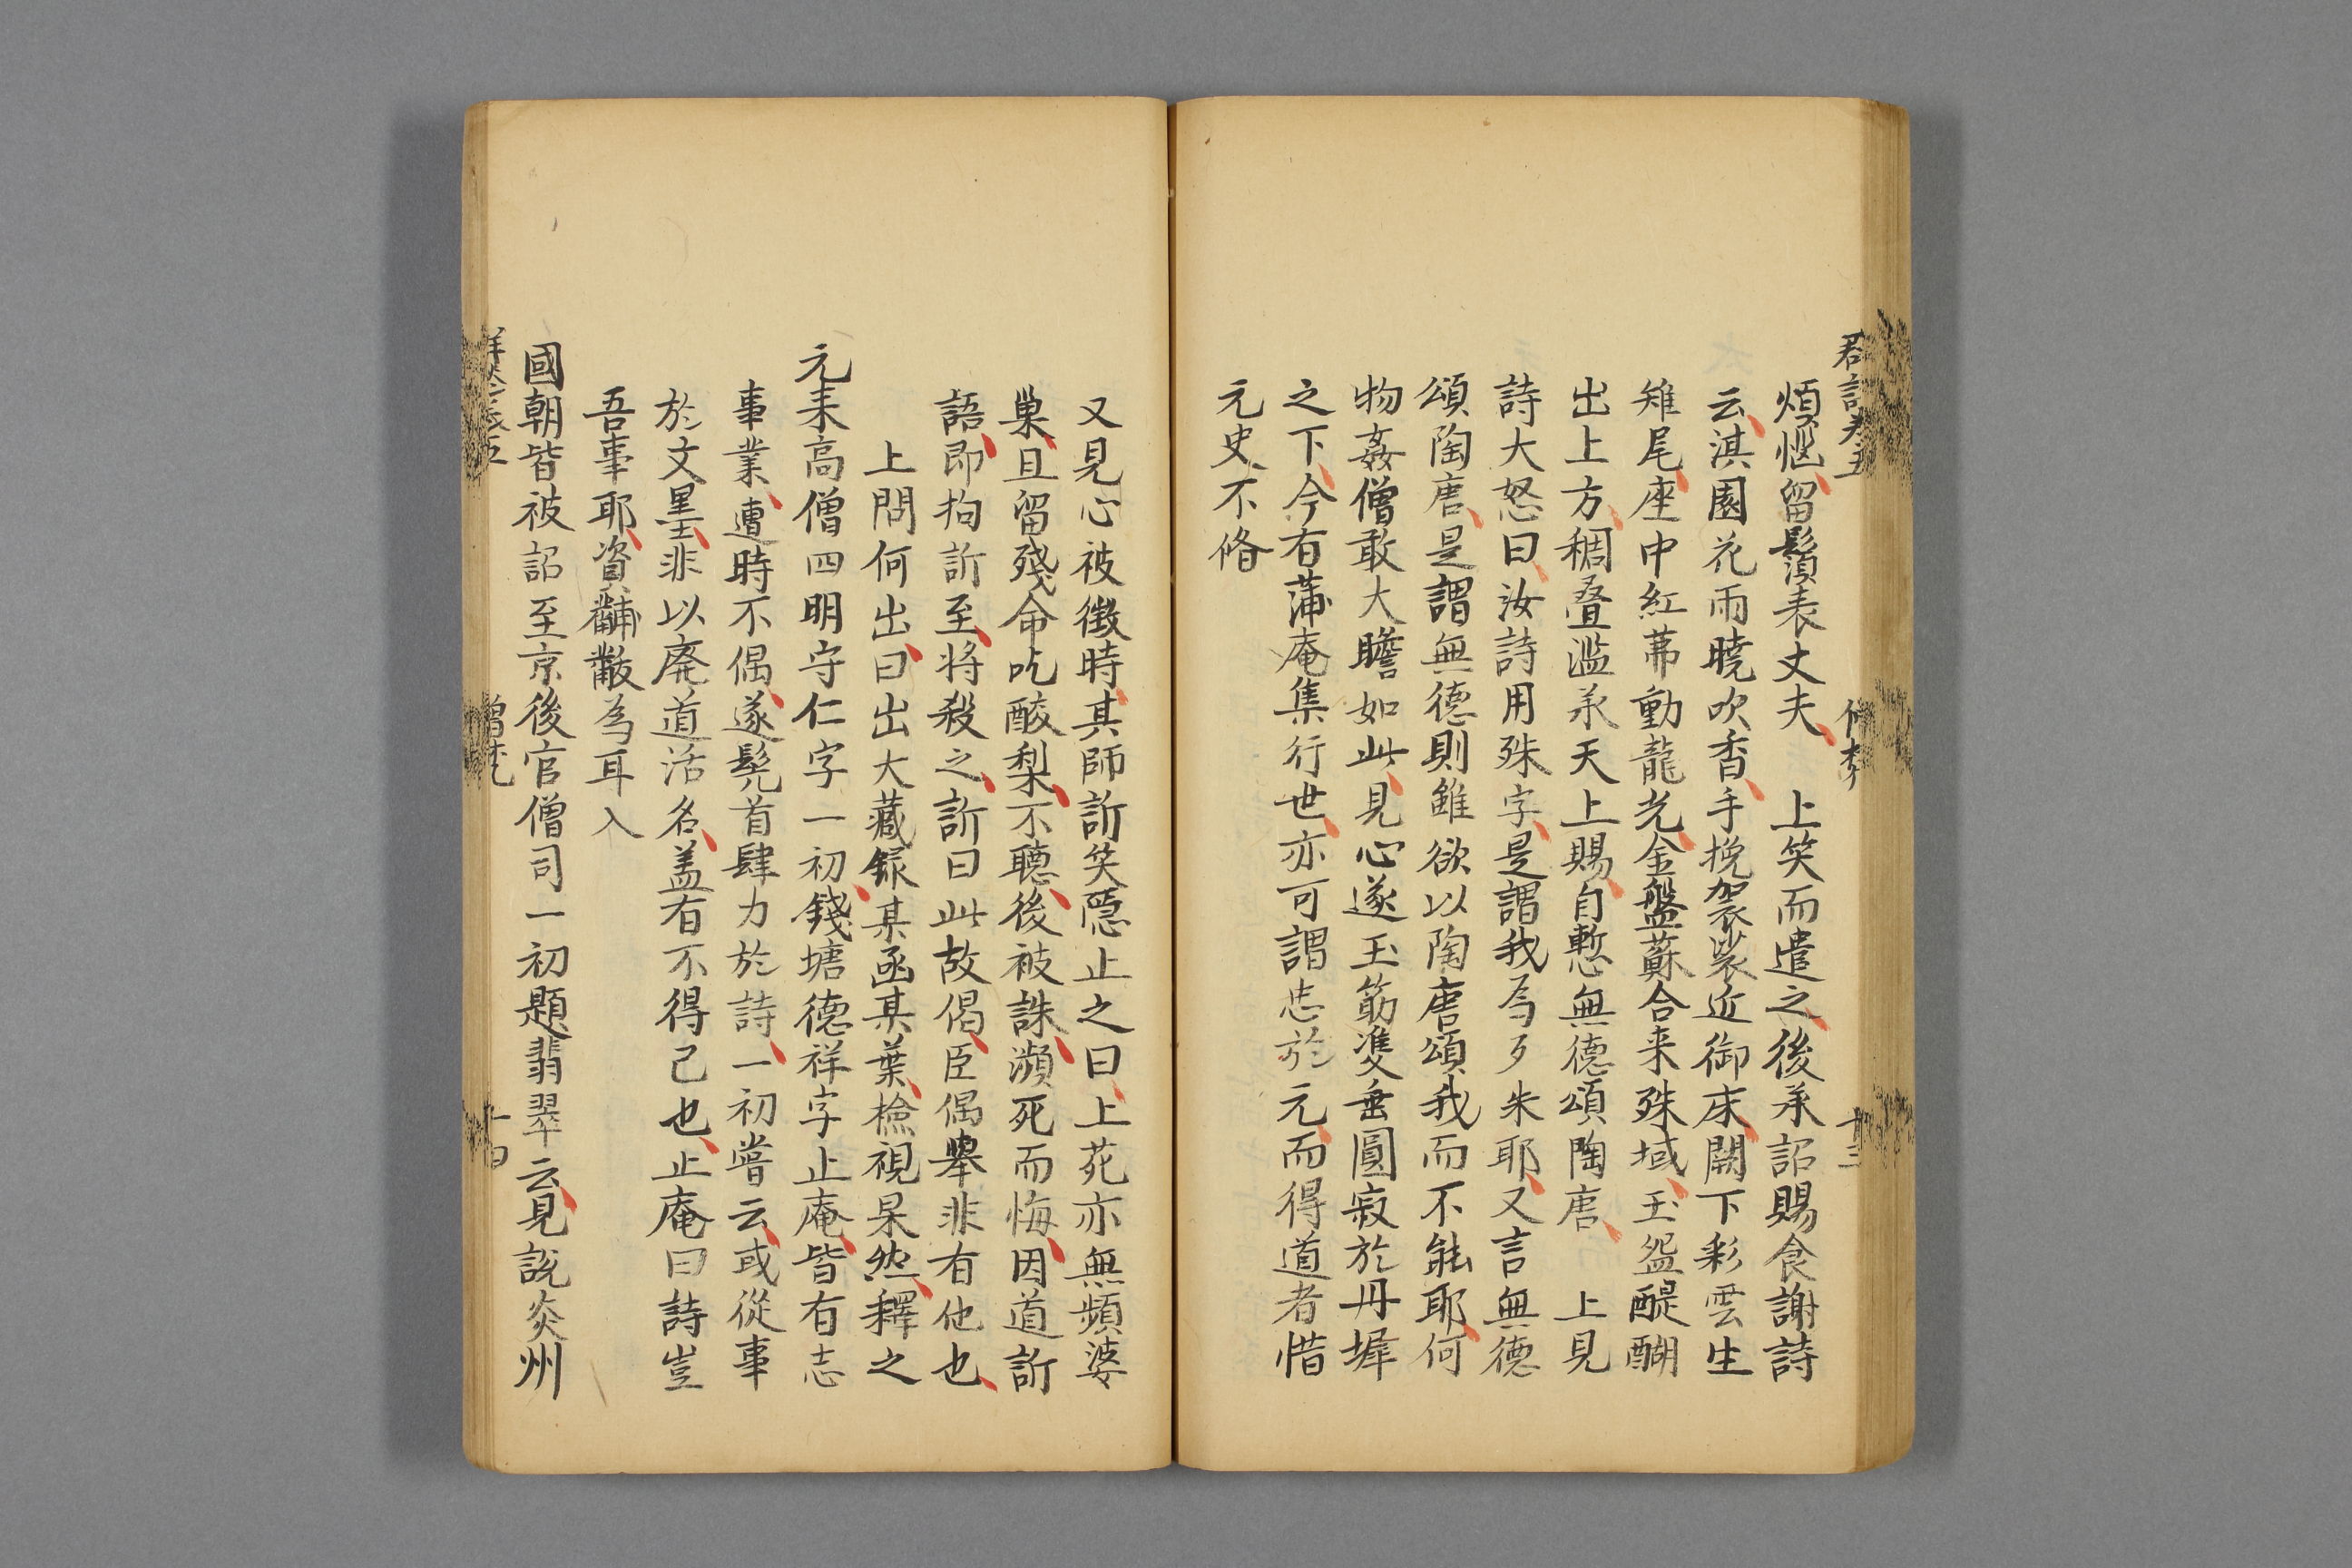 煩惱留鬚表丈夫　上笑而遣之後承詔賜食謝詩
云淇園花雨曉吹香手挽袈裟近御床闕下彩雲生
雉尾座中紅茀動龍光金盤蘇合来殊域玉盌醍醐
出上方稠疊濫承天上賜自慙無德頌陶唐　上見
詩大怒曰汝詩用殊字是謂我為歹朱耶又言無德
頌陶唐是謂無德則雖欲以陶唐頌我而不能耶何
物姦僧敢大膽如此見心遂玉筯雙垂圓寂於丹墀
之下今有蒲庵集行世亦可謂忠於元而得道者惜
元史不脩
又見心被徵時其師訢笑隱止之曰上苑亦無頻婆
果且留殘命吃酸梨不聽後被誅瀕死而悔因道訢
語即拘訢至将殺之訢曰此故偈臣偶舉非有他也
上問何出曰出大藏録某函某葉檢視杲然釋之
元末高僧四明守仁字一初錢塘德祥字止庵皆有志
事業遭時不偶遂髡首肆力於詩一初嘗云或從事
於文墨非以廃道活名盖有不得已也止庵曰詩豈
吾事耶資黼黻為耳入
國朝皆被詔至京後官僧司一初題翡翠云見說炎州
十三